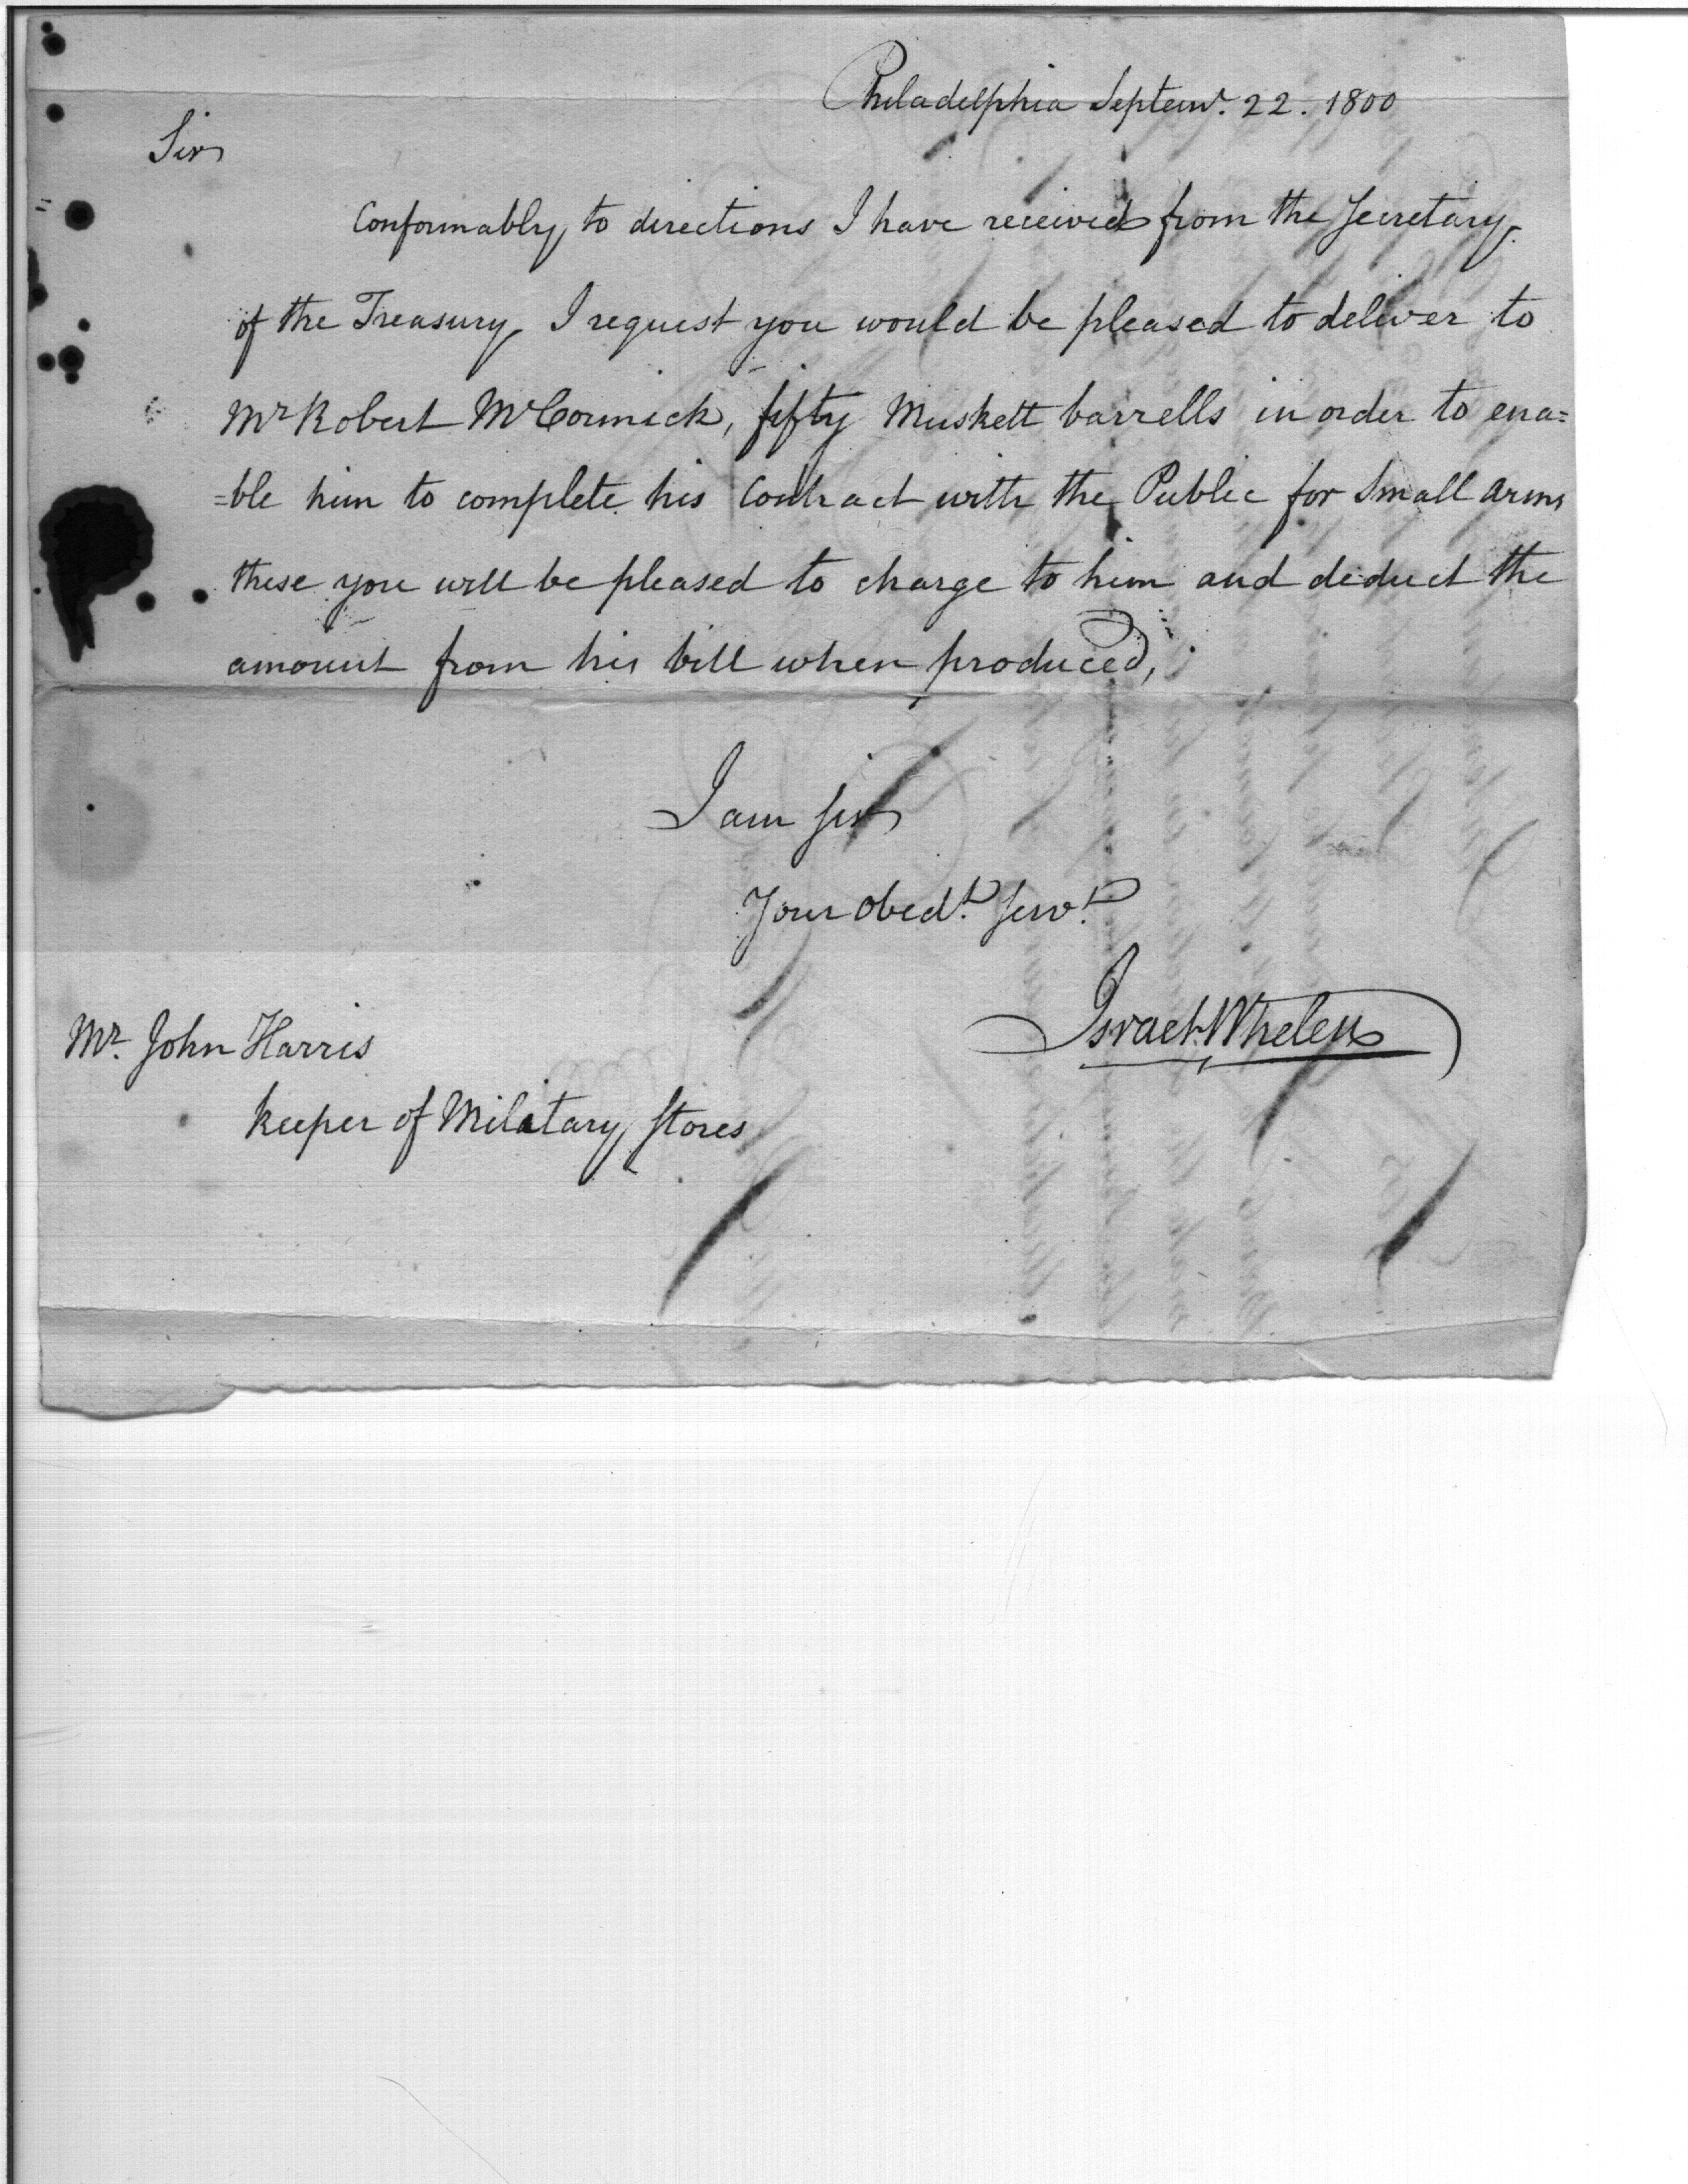 Philadelphia Septemr. 22. 1800
Sir
Conformably to directions I have received from the Secretary
of the Treasury, I request you would be pleased to deliver to
Mr Robert McCormick, fifty Muskett barrells in order to ena=
=ble him to complete his Contract with the Public for Small arms
these you will be pleased to charge to him and deduct the
amount from his bill when produced,
I am Sir
Your obedt. Servt.
Israel Whelen
Mr. John Harris
Keeper of Military Stores